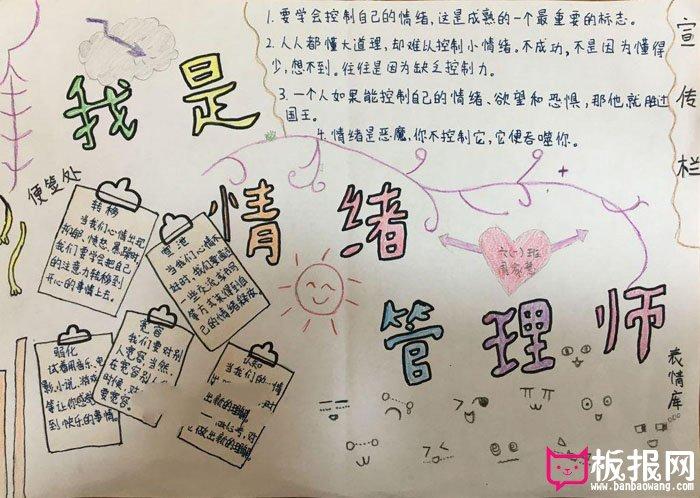 1. 要学会控制自己的情绪,这是成熟的一个最重要的标志。
2. 人人都懂大道理,却难以控制小情绪。不成功,不是因为懂得
少,想不到。往往是因为缺乏控制力。
3. 一个人如果能控制自己的情绪、欲望和恐惧,那他就胜过
国王。
4. 情绪是恶魔,你不控制它,它便吞噬你。
宣传栏
我是
情绪
管理师
六(一)班
便签处
转移
当我们心情出现
抑郁、愤怒、暴躁时,
我们要学会把自己
的注意力转移到
开心的事情上去。
宣泄
当我们心情
等方式来得到自
己的情绪释放
弱化
试着用音乐、电
影、小说、游戏
等让你感
到快乐的事情。
宽容
我们要对别
人宽容,当然
在宽容别
时候,对
要宽容。
认知
当我们的情
出新的理解
做出新的理解
表情库
板报网
www.banbaowang.com